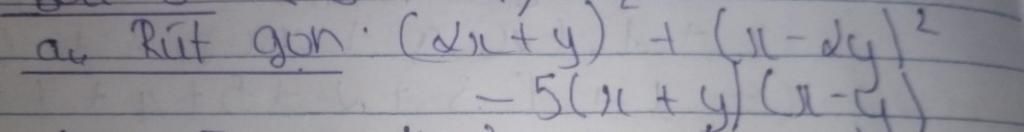 a, Rút gọn: (2x+y)² + (x-2y)²
- 5(x+y)(x-y)